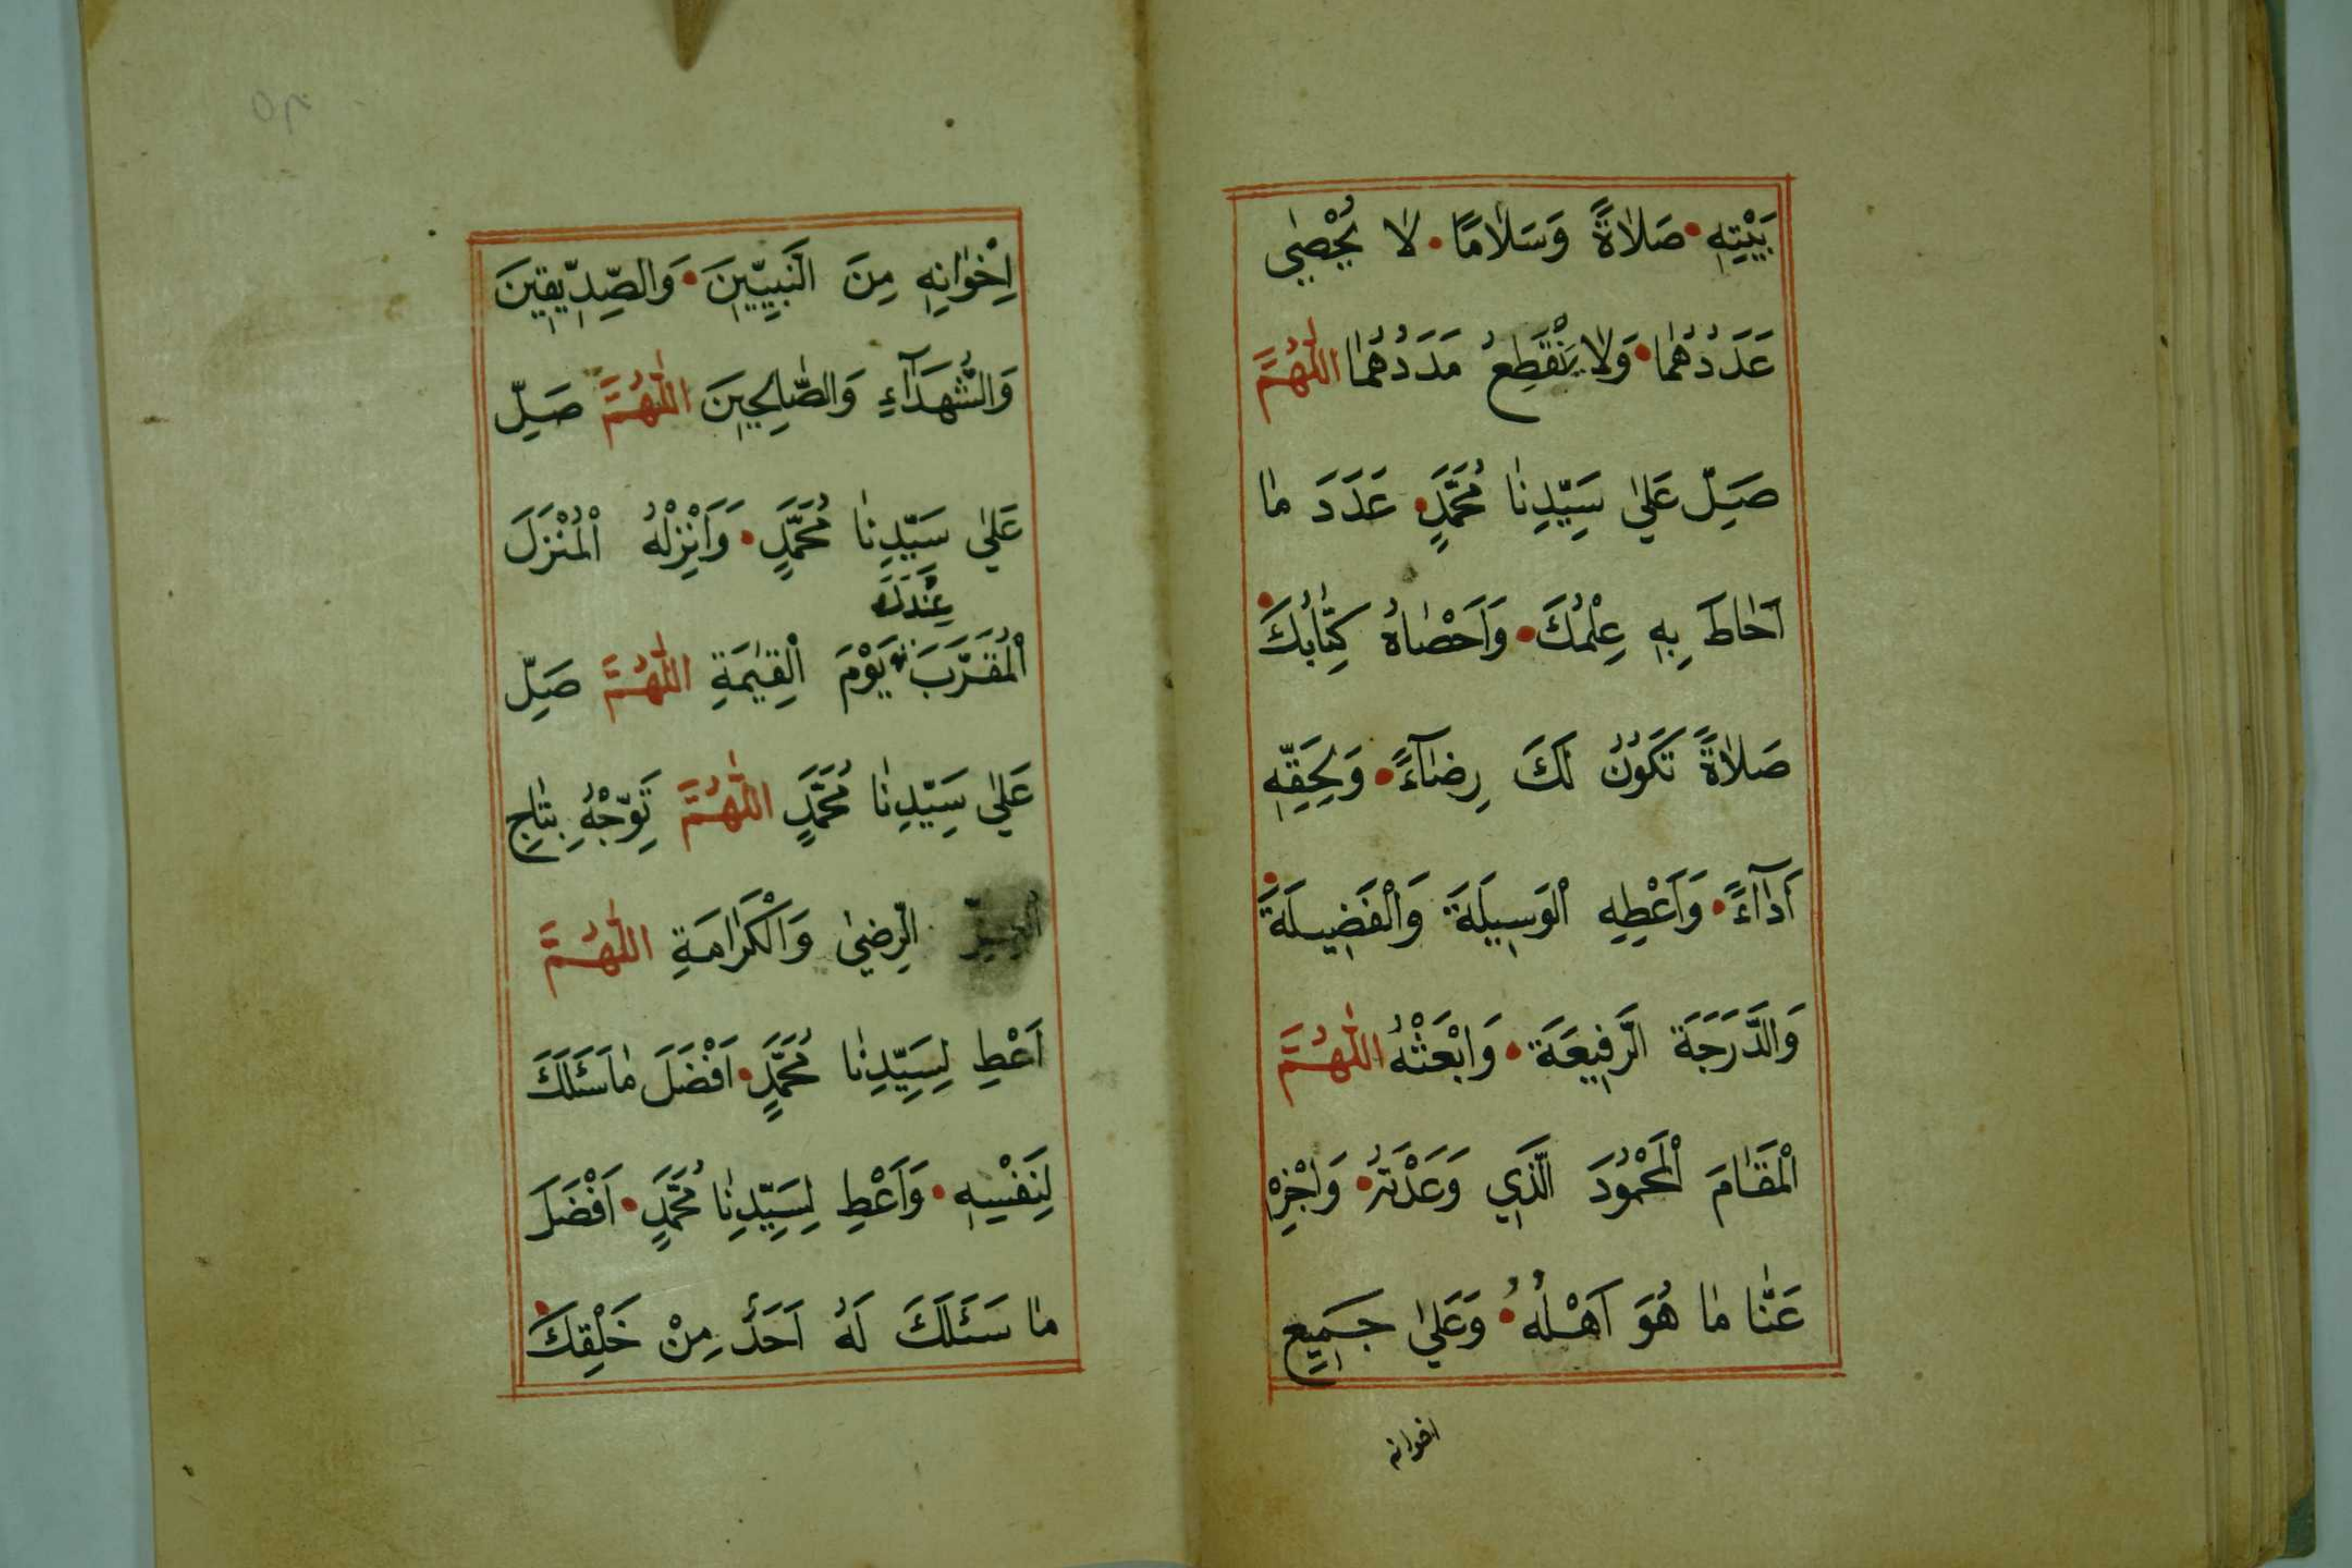 بَيْتِهِ • صَلَاةً وَسَلَامًا • لَا يُحْصٰى
عَدَدُهُمَا • وَلَا يَنْقَطِعُ مَدَدُهُمَا اَللّٰهُمَّ
صَلِّ عَلٰى سَيِّدِنَا مُحَمَّدٍ • عَدَدَ مَا
اَحَاطَ بِهِ عِلْمُكَ • وَاَحْصَاهُ كِتَابُكَ •
صَلَاةً تَكُونُ لَكَ رِضَآءً • وَلِحَقِّهِ
اَدَآءً • وَاَعْطِهِ الْوَسِيلَةَ وَالْفَضِيلَةَ •
وَالدَّرَجَةَ الرَّفِيعَةَ • وَابْعَثْهُ اَللّٰهُمَّ
الْمَقَامَ الْمَحْمُودَ الَّذِي وَعَدْتَهُ • وَاجْزِهْ
عَنَّا مَا هُوَ اَهْلُهُ • وَعَلٰى جَمِيعِ
اخوانه
اِخْوَانِهِ مِنَ النَّبِيِّينَ • وَالصِّدِّيقِينَ
وَالشُّهَدَآءِ وَالصَّالِحِينَ اَللّٰهُمَّ صَلِّ
عَلٰى سَيِّدِنَا مُحَمَّدٍ • وَاَنْزِلْهُ الْمُنْزَلَ
عِنْدَكَ
الْمُقَرَّبَ يَوْمَ الْقِيٰمَةِ اَللّٰهُمَّ صَلِّ
عَلٰى سَيِّدِنَا مُحَمَّدٍ اَللّٰهُمَّ تَوِّجْهُ بِتَاجِ
الرِّضٰى وَالْكَرَامَةِ اَللّٰهُمَّ
اَعْطِ لِسَيِّدِنَا مُحَمَّدٍ • اَفْضَلَ مَا سَئَلَكَ
لِنَفْسِهِ • وَاَعْطِ لِسَيِّدِنَا مُحَمَّدٍ • اَفْضَلَ
مَا سَئَلَكَ لَهُ اَحَدٌ مِنْ خَلْقِكَ •